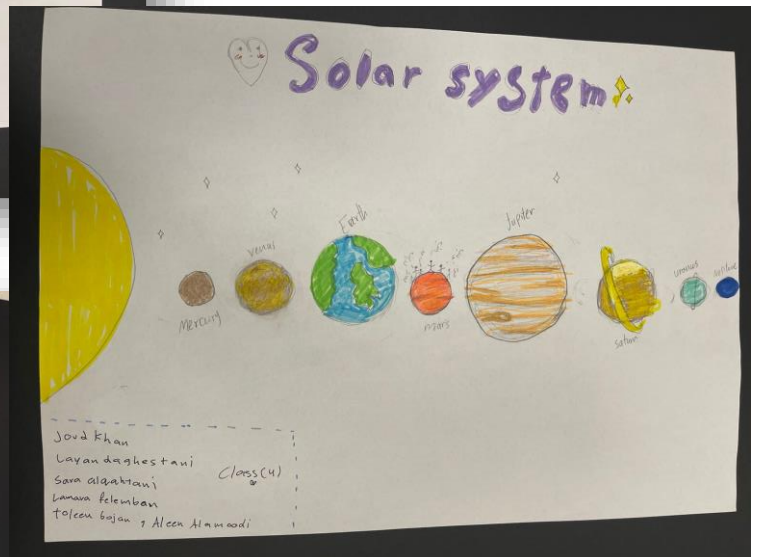 Solar system
Mercury
Venus
Earth
mars
Jupiter
saturn
uranus
Joud Khan
Layan daghestani
Sara alqahtani
Lamara Felemban
toleen bojan , Aleen Alamoodi
Class(4)